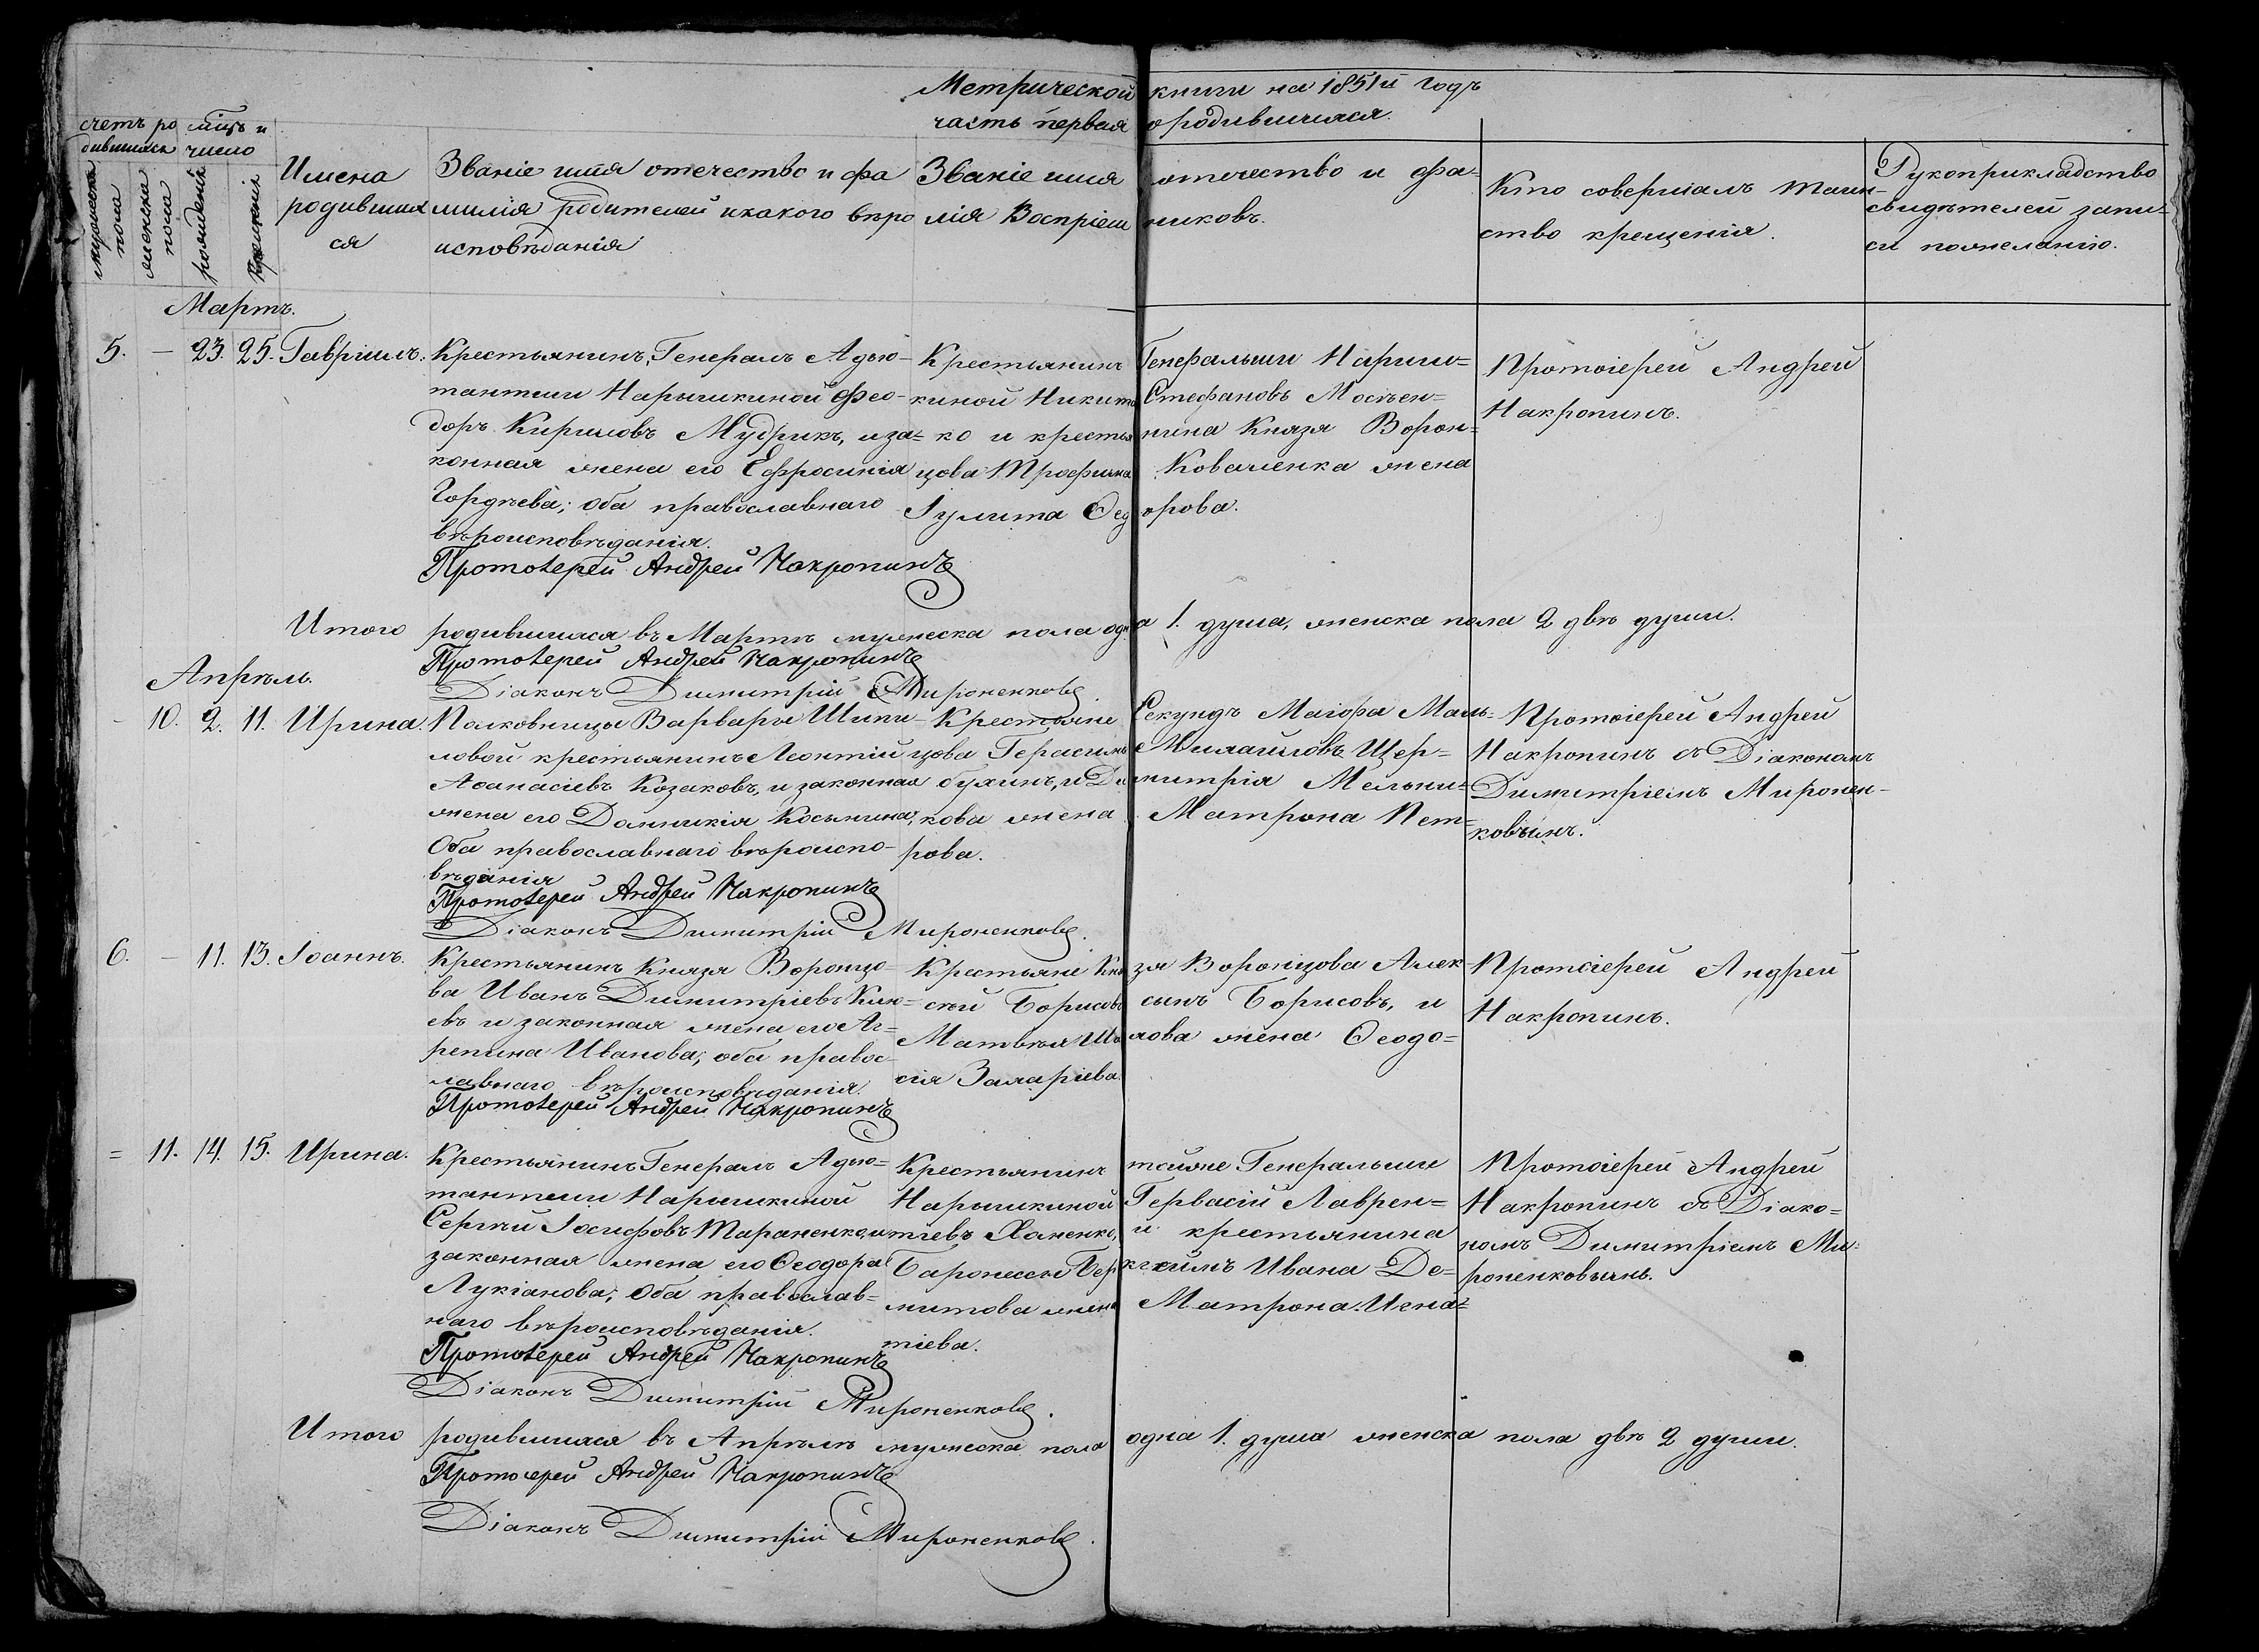 Метрической книги на 1851й годъ
часть первая о родившихся.
счетъ ро дившихся
мѣсцъ и число
мужеска пола
женска пола
рожденія
крещенія
Имена родившихся
Званіе имя отечество и фа
милія родителей и какого вѣро
исповѣданія
Званіе имя отечество и фа-
милія Воспріем никовъ.
Кто совершалъ таин-
ство крещенія.
Рукоприкладство
свидѣтелей запи-
си пожеланію.
Мартъ.
5. — 23. 25. Гавріилъ.
Крестьянинъ, Генералъ Адъю-
тантши Нарышкиной Фео-
доръ Кириловъ Мудрикъ, иза-
конная жена его Ефросинія
Гордѣева; оба православнаго
вѣроисповѣданія.
Протоіерей Андрей Накропинъ
Крестьянинъ Генеральши Нариш=
киной Никита Стефановъ Мосѣен=
ко и крестьянина Князя Ворон=
цова Трофима Коваленка жена
Іулита Ѳедорова.
Протоіерей Андрей
Накропинъ.
Итого родившихся въ Мартѣ мужеска пола одна 1. душа, женска пола 2 двѣ души.
Протоіерей Андрей Накропинъ
Діаконъ Димитрій Мироненковъ.
Апрѣль.
- 10. 2. 11. Ирина.
Полковницы Варвары Шипи-
ловой крестьянинъ Леонтій
Аѳанасіевъ Козаковъ, и законная
жена его Домникія Косьмина,
Оба православнаго вѣроиспо-
вѣданія
Протоіерей Андрей Накропинъ
Діаконъ Димитрій Мироненковъ.
Крестьяне Секундъ Маіора Маль=
цова Герасимъ Михайловъ Щер=
бухинъ, и Димитрія Мельни=
кова жена Матрона Пет=
рова.
Протоіерей Андрей
Накропинъ съ Діакономъ
Димитріемъ Миронен-
ковымъ.
6. — 11. 13. Іоаннъ.
Крестьянинъ Князя Воронцо-
ва Иванъ Димитріевъ Клю=
евъ и законная жена его Аг=
репина Иванова; оба правос-
лавнаго вѣроисповѣданія.
Протоіерей Андрей Накропинъ
Крестьяне Князя Воронцова Алек-
сѣй Борисовъ сынъ Борисовъ, и
Матвѣя лова жена Ѳеодо=
сія Захаріева.
Протоіерей Андрей
Накропинъ.
= 11. 14. 15. Ирина.
Крестьянинъ Генералъ Адъю=
тантши Нарышкиной
Сергѣй Іосифовъ Тараненко, и
законная жена его Ѳеодора
Лукіанова; Оба православ=
наго вѣроисповѣданія.
Протоіерей Андрей Накропинъ
Діаконъ Димитрій Мироненковъ.
Крестьянинъ тойже Генеральши
Нарышкиной Гервасій Лаврен=
тіевъ Ханенко, и крестьянина
Баронессы Беркгеимъ Ивана Де=
митова жена Матрона Игна=
тіева.
Протоіерей Андрей
Накропинъ съ Діако=
номъ Димитріемъ Ми=
роненковымъ.
Итого родившихся въ Апрѣлѣ мужеска пола одна 1. душа женска пола двѣ 2 души.
Протоіерей Андрей Накропинъ
Діаконъ Димитрій Мироненковъ.